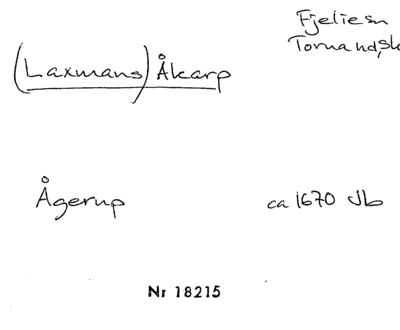 Fjeliesn
Tornands,sk
(Laxmans) Åkarp
Ågerup ca 1670 Jb
Nr 18215